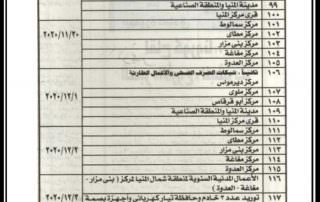 ٩٩ مدينة المنيا والمنطقة الصناعية
١٠٠ قرى مركز المنيا
١٠١ مركز سمالوط
١٠٢ مركز مطاى
١٠٣ مركز بنى مزار
٢٠٢٠/١١/٣٠
١٠٤ مركز مغاغة
١٠٥ مركز العدوة
١٠٦ شبكات الصرف الصحى والاعمال الطارئة
مركز ديرمواس
١٠٧ مركز ملوى
٢٠٢٠/١٢/١
١٠٨ مركز أبو قرقاص
١٠٩ مدينة المنيا والمنطقة الصناعية
١١٠ قرى مركز المنيا
١١١ مركز سمالوط
١١٢ مركز مطاى
١١٣ مركز بنى مزار
٢٠٢٠/١٢/٢
١١٤ مركز مغاغة
١١٥ مركز العدوة
١١٦ الأعمال المدنية السنوية لمنطقة شمال المنيا لمركز ( بنى مزار -
مغاغة - العدوة )
١١٧ توريد عدد ٢ خادم وحافظة تيار كهربائى وأجهزة بصمة
٢٠٢٠/١٢/٣